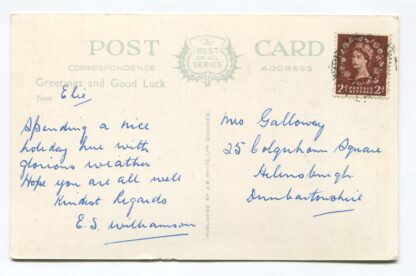 POST CARD
The
BEST
OF ALL
SERIES
CORRESPONDENCE
ADDRESS
Greetings and Good Luck
from Elie
Spending a nice
holiday here with
glorious weather
Hope you are all well
Kindest Regards
E.S. Williamson
PUBLISHED BY J.B. WHITE, LTD. DUNDEE.
POSTAGE
REVENUE
2D 2D
Mrs Galloway
25 Colquhoun Square
Helensburgh
Dumbartonshire